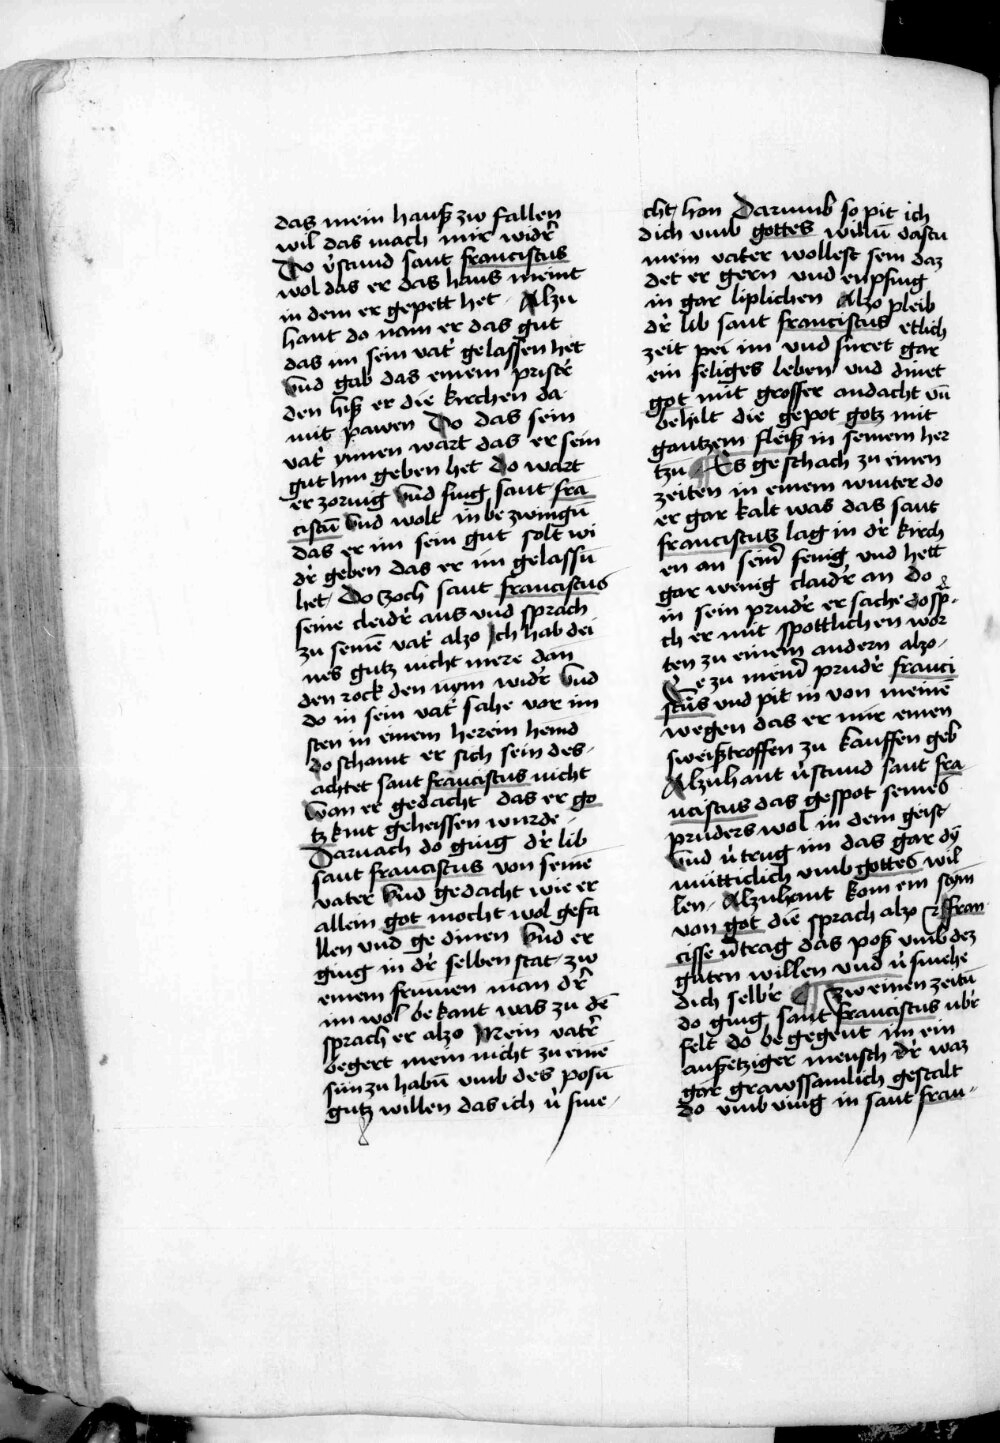 das mein hauß zw fallen
wil das mach mir widr̄
Do v̄stund sant franciscus
wol das er das haus meint
in dem er gepett het Alzu
hant do nam er das gut
das im sein vat̄ gelassen het
vnd gab das einem pristr̄
den hiß er die kirchen da
mit pawen Do das sein
vat̄ ynnen wart das er sein
gut hin geben het do wart
er zornig vnd fing sant fra
ciscū vnd wolt in bezwingn̄
das er im sein gut solt wi
dr̄ geben das er im gelassn̄
het Do zoch sant franciscus
seine cleidr̄ aus vnd sprach
zu seinē vat̄ alzo Ich hab dei
nes gutz nicht mere dan
den rock den nym widr̄ vnd
do in sein vat̄ sahe vor im
sten in einem herein hemd
do schamt er sich sein des
achtet sant franciscus nicht
wan er gedacht das er go
tz kint geheissen wurde
Darnach do ging dr̄ lib
sant franciscus von seinē
vater vnd gedacht wie er
allein got mocht wol gefa
llen vnd ge dinen vnd er
ging in dr̄ selben stat zw
einem frumen man dr̄
im wol bekant was zu dē
sprach er alzo Mein vatr̄
begert mein nicht zu einē
sun zu habn̄ vmb des posn̄
gutz willen das ich v̄ sme
cht han Darumb so pit ich
dich vmb gottes willn̄ dastu
mein vater wollest sein daz
det er gern vnd enpfing
in gar liplichen Alzo pleib
dr̄ lib sant franciscus etlich
zeit pei im vnd furet gar
ein seliges leben vnd dinet
got mit grosser andacht vn̄
behilt die gepot gotz mit
gantzem fleiß in seinem her
tzn Es geschach zu einen
zeiten in einem winter do
er gar kalt was das sant
franciscus lag in dr̄ kirch
en an seim̄ fenig vnd hett
gar wenig claidr̄ an do
in sein prudr̄ er sache do sp̄
ch er mit spottlichen wor
ten zu einem andern alzo
Ge zu meim̄ prudr̄ franci
scūs vnd pit in von meinē
wegen das er mir einen
sweißtroffen zu kauffen geb
Alzuhant v̄stund sant fra
nciscus das gespot seines
pruders wol in dem geist
vnd v̄trug im das gar dÿ
mütticlich vmb gottes wil
len Alzuhant kom ein stÿm
von got die sprach alzo fran
cisse v̄trag das poß vmb dez
guten willen vnd v̄smehe
dich selbr̄ ¶ zw einen zeitn̄
do ging sant franciscus vbr̄
felt do begegent im ein
außetziger mensch dr̄ waz
gar grawssamlich gestalt
do vmb ving in sant fran